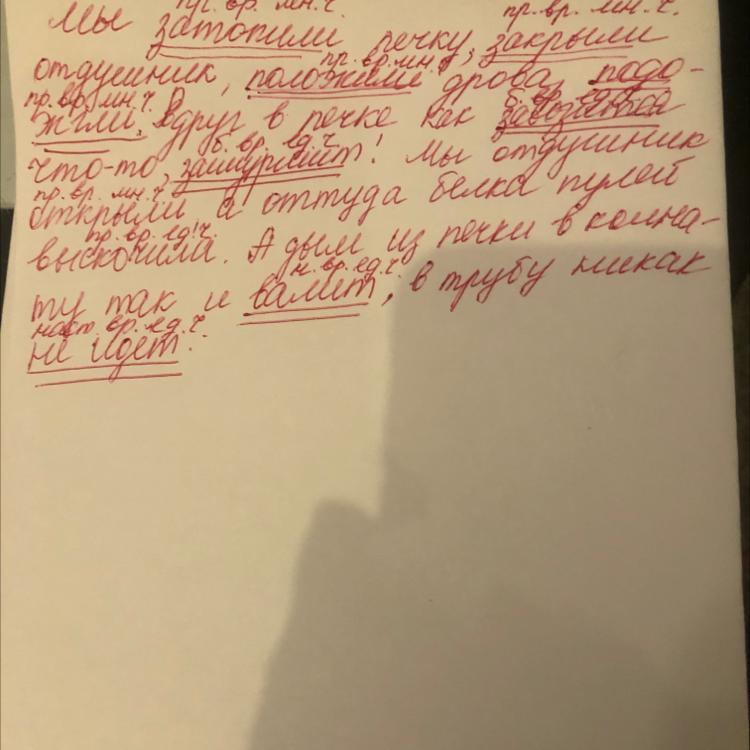 пр. вр. мн. ч. пр. вр. мн. ч.
Мы затопили печку, закрыли
пр. вр. мн. ч.
отдушник, положили дрова, подо-
пр. вр. мн. ч. б. вр. ед. ч.
жгли. Вдруг в печке как завозится
б. вр. ед. ч.
что-то, зашуршит! Мы отдушник
пр. вр. мн. ч.
открыли а оттуда белка пулей
пр. вр. ед. ч.
выскочила. А дым из печки в комна-
н. вр. ед. ч.
ту так и валит, в трубу никак
наст. вр. ед. ч.
не идет.